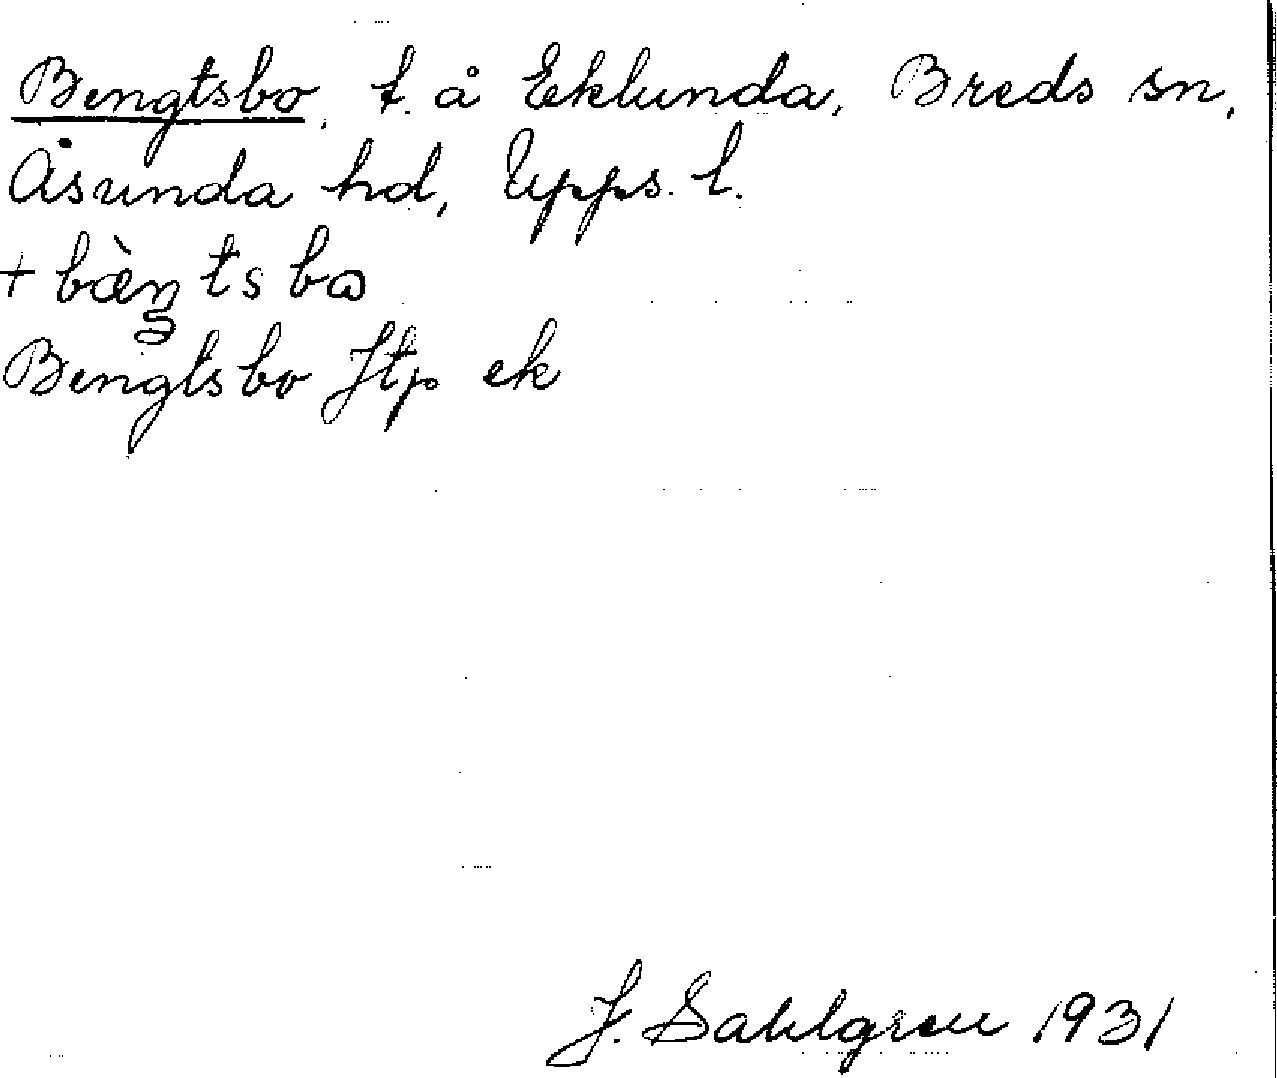 Bengtsbo, t. å Eklunda, Breds sn,
Åsunda hd, Upps. l.
+ bæ̀ŋtsbω
Bengtsbo Jtp ek
J. Sahlgren 1931